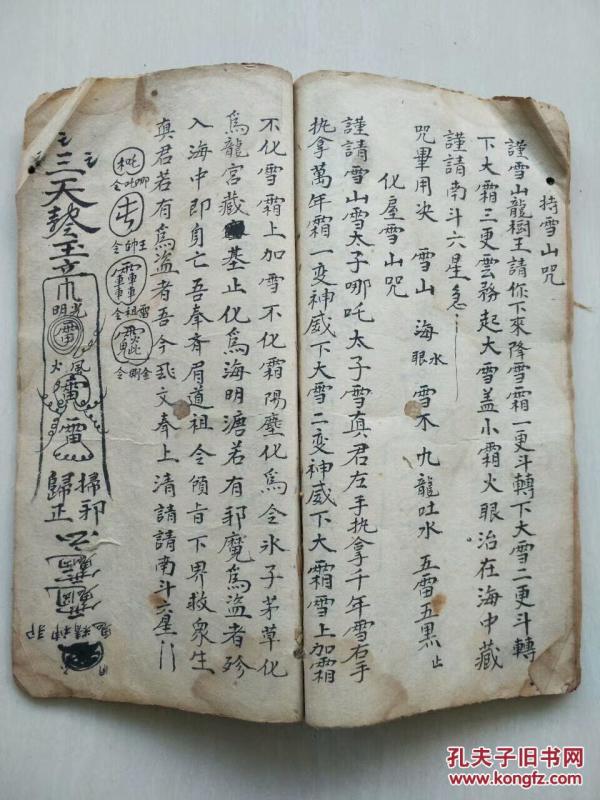 持雪山咒
謹雪山龍樹王請你下來降雪霜一更斗轉下大雪二更斗轉
下大霜三更雲務起大雪盖小霜火眼治在海中藏
謹請南斗六星急
咒畢用决 雪山 海水眼 雪不 九龍吐水 五雷五黑止
化屋雪山咒
謹請雪山雪太子哪吒太子雪真君左手执拿千年雪右手
执拿萬年霜一变神威下大雪二变神威下大霜雪上加霜
不化雪霜上加雪不化霜陽塵化爲令氷子茅草化
爲龍宫藏基止化爲海明溏若有邪魔爲盗者殄
入海中即身亡吾奉斉眉道祖令傾旨下界救衆生
真君若有爲盗者吾今文奉上清請請南斗六星
三天
光明
風火
掃邪歸正
邪神精鬼
孔夫子旧书网
www.kongfz.com